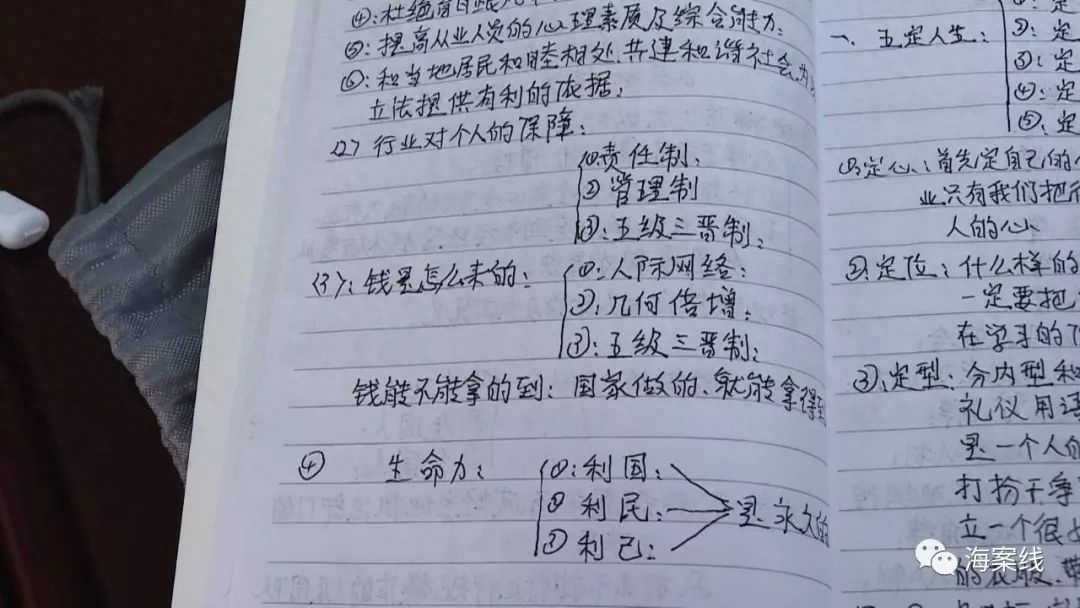 ④:杜绝盲目
⑤:提高从业人员的心理素质及综合能力:
⑥:和当地居民和睦相处.共建和谐社会.为
立法提供有利的依据;
(2)行业对个人的保障:
①责任制:
②管理制
③:五级三晋制:
(3):钱是怎么来的:
①:人际网络:
②:几何倍增:
③:五级三晋制:
钱能不能拿的到:国家做的.就能拿得到
④ 生命力:
①:利国:
② 利民:
③ 利己:
是永久的
①:定
一、五定人生:
②:定
③:定
④:定
⑤:定
①:定心:首先定自己的
业只有我们把
人的心
②:定位:什么样的
一定要把
在学习的
③:定型:分内型和
礼仪用语
是一个人的
打扮干净
立一个很
的衣服.带
海案线